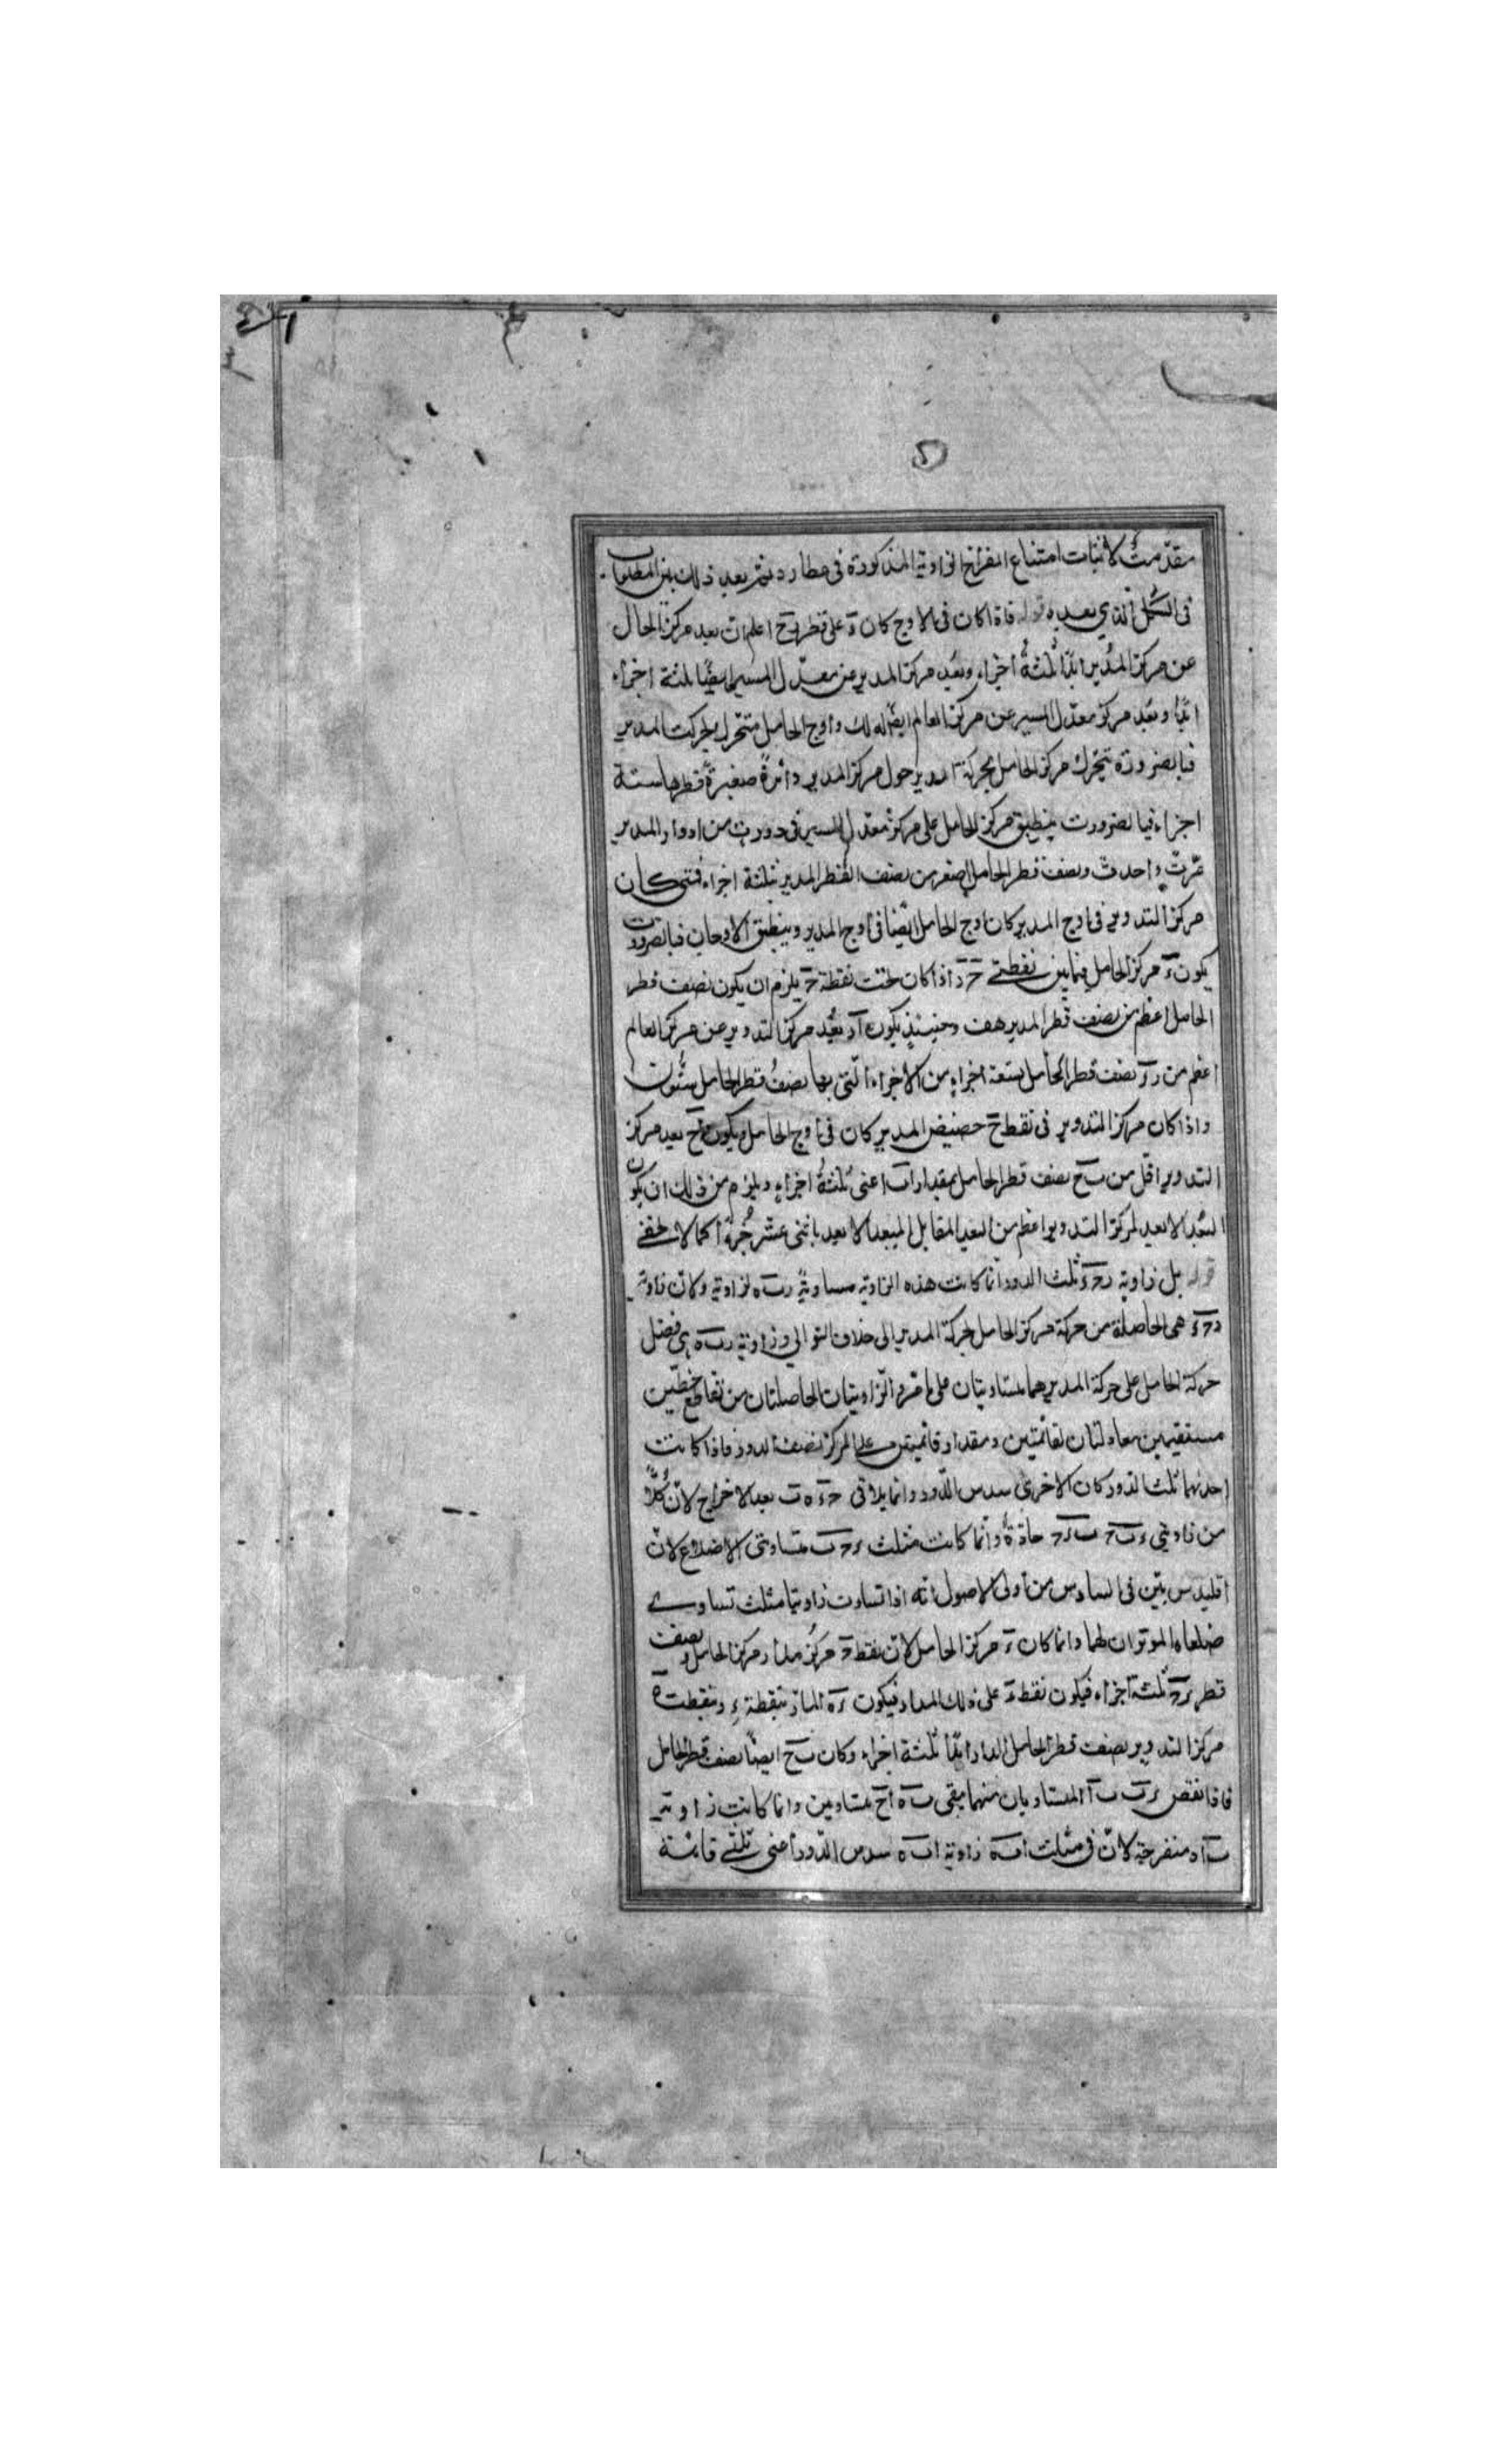 مقدّمتٌ لأثبات امتناع انفراج الزاوية المذكورة فى عطارد ثمّ بعد ذلك بيّن المطلوب
فى الشكل الّذي بعده قوله فاذا كان فى الاوج كان ءَ على قطر بَحَ اعلم انّ بعد مركز الحال
عن مركز المدير ابدًا ثلثةُ اجزاءٍ وبُعد مركز المدير عن معدّل المسير ايضًا ثلثة اجزاء
ابدًا وبُعد مركز معدّل المسير عن مركز العالم ايضًا كذلك واوج الحامل متحرّك بحركت المدير
فبالضرورة يتحرّك مركز الحامل بحركة المدير حول مركز المدير دائرةً صغيرةً قطرها ستة
اجزاء فبالضرورت ينطبق مركز الحامل على مركز معدّل المسير فى دورة من ادوار المدير
مرّتٍ واحدة ونصف قطر الحامل اصغر من نصف القطر المدير بثلثة اجزاء فمتى كان
مركز التدوير فى اوج المدير كان اوج الحامل ايضًا فى اوج المدير وينطبق الاوجان فبالضرورت
يكون ءَ مركز الحامل فيما بين نقطتے حَ دَ اذا كان تحت نقطة حَ يلزم ان يكون نصف قطر
الحامل اعظم من نصف قطر المدير هف وحينئذٍ يكون آدَ بُعد مركز التدوير عن مركز العالم
اعظم من رءَ نصف قطر الحامل بتسعة اجزاءٍ من الاجزاء الّتى بها نصفُ قطر الحامل ستّون
واذا كان مركز التدوير فى نقطة حَ حضيض المدير كان فى اوج الحامل ويكون اَحَ بعد مركز
التدوير اقلّ من بَ حَ نصف قطر الحامل بمقدار اَبَ اعنى ثلثةُ اجزاءٍ ويلزم من ذلك ان يكون
البُعد الابعد لمركز التدوير اعظم من البعد المقابل للبعد الابعد باثنى عشر جُزءًا كما لا يخفے
قوله بل زاوية رحَ ءَ ثلث الدور انّما كانت هذه الزاوية مساويةً رب ه لزاوية ولانّ زاوية
دحَ ءَ هى الحاصلة من حركة مركز الحامل بحركة المدير الى خلاف التوالي وزاوية رب ه هى فضل
حركة الحامل على حركة المدير هما متساويتان على ما مرّ والزاويتان الحاصلتان من تقاطع خطّين
مستقيمين معادلتان لقائمتين ومقدار قائمتين على المركز نصف الدور فاذا كانت
احديهما ثلث الدور كان الاخرى سدس الدور وانما يلاقى حَ ءَ ه بَ بعد الاخراج لانّ كُلًّا
من زاويتي ءَ بَ حَ بَ ءَ حَ حادّةٌ وانّما كانت مثلث ءحَ بَ متساوىَ الاضلاع لانّ
اقليدس بيّن فى السادس من اولى الاصول انّه اذا تساوت زاويتا مثلث تساوے
ضلعاه الموتران لهما وانما كان ءَ مركز الحامل لانّ نقطة حَ مركزُ مدار مركز الحامل ونصف
قطر ءحَ ثلثة اجزاء فيكون نقطة ءَ على ذلك المدار فيكون ءه المارّ بنقطة ءِ وبنقطت ه
مركز التدوير نصف قطر الحامل ابدًا ثلثة اجزاء وكان بَ حَ ايضًا نصف قطر الحامل
فاذا نقص ءبَ بَ آ المتساويان منهما يبقى بَ ه اَحَ متساويين وانما كانت زاوية
بَ آه منفرجة لانّ فى مثلث ابَ ه زاوية ابَ ه سدس الدّور اعنى ثلثے قائمة